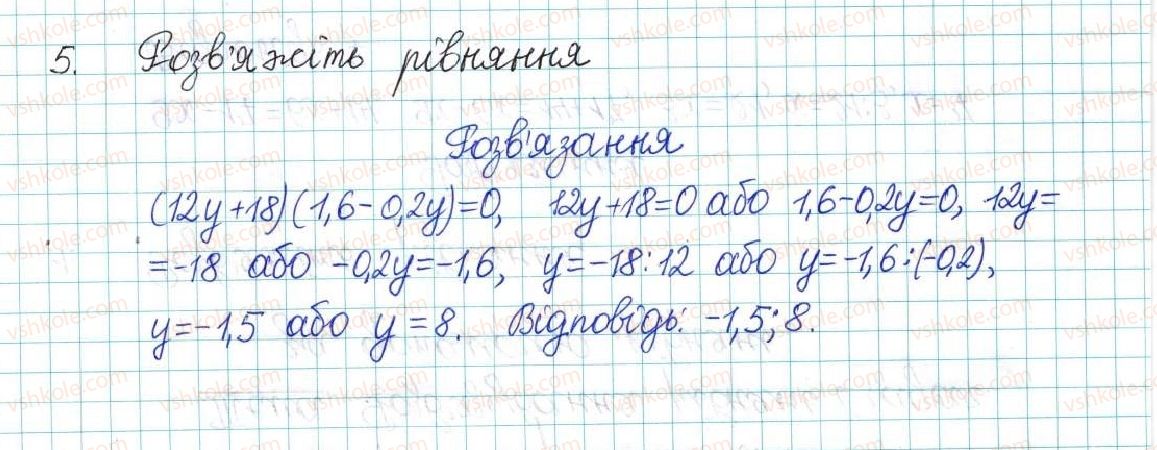 5. Розв'яжіть рівняння
Розв'язання
(12y+18)(1,6-0,2y)=0, 12y+18=0 або 1,6-0,2y=0, 12y=
=-18 або -0,2y=-1,6, y=-18:12 або y=-1,6:(-0,2),
y=-1,5 або y=8. Відповідь: -1,5; 8.